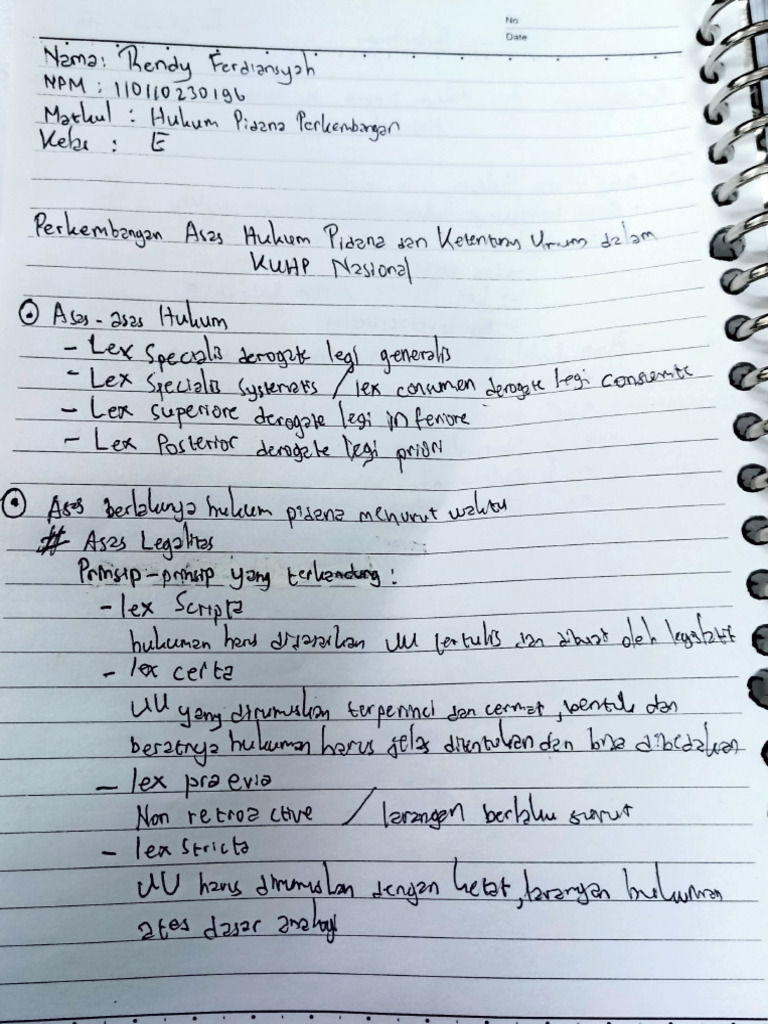 No
Date
Nama: Rendy Ferdiansyah
NPM : 110110230196
Matkul : Hukum Pidana Perkembangan
Kelas : E
Perkembangan Asas Hukum Pidana dan Ketentuan Umum dalam
KUHP Nasional
Asas-asas Hukum
- Lex Specialis derogate legi generalis
- Lex Specialis systematis / lex consumen derogate legi consumte
- Lex superiore derogate legi inferiore
- Lex Posterior derogate legi priori
Asas berlakunya hukum pidana menurut waktu
# Asas Legalitas
Prinsip-prinsip yang terkandung :
- lex Scripta
hukuman harus didasarkan UU tertulis dan dibuat oleh legislatif
- lex certa
UU yang dirumuskan terperinci dan cermat, bentuk dan
beratnya hukuman harus jelas ditentukan dan bisa dibedakan
- lex praevia
Non retroactive / larangan berlaku surut
- lex stricta
UU harus dirumuskan dengan ketat, larangan hukuman
atas dasar analogi